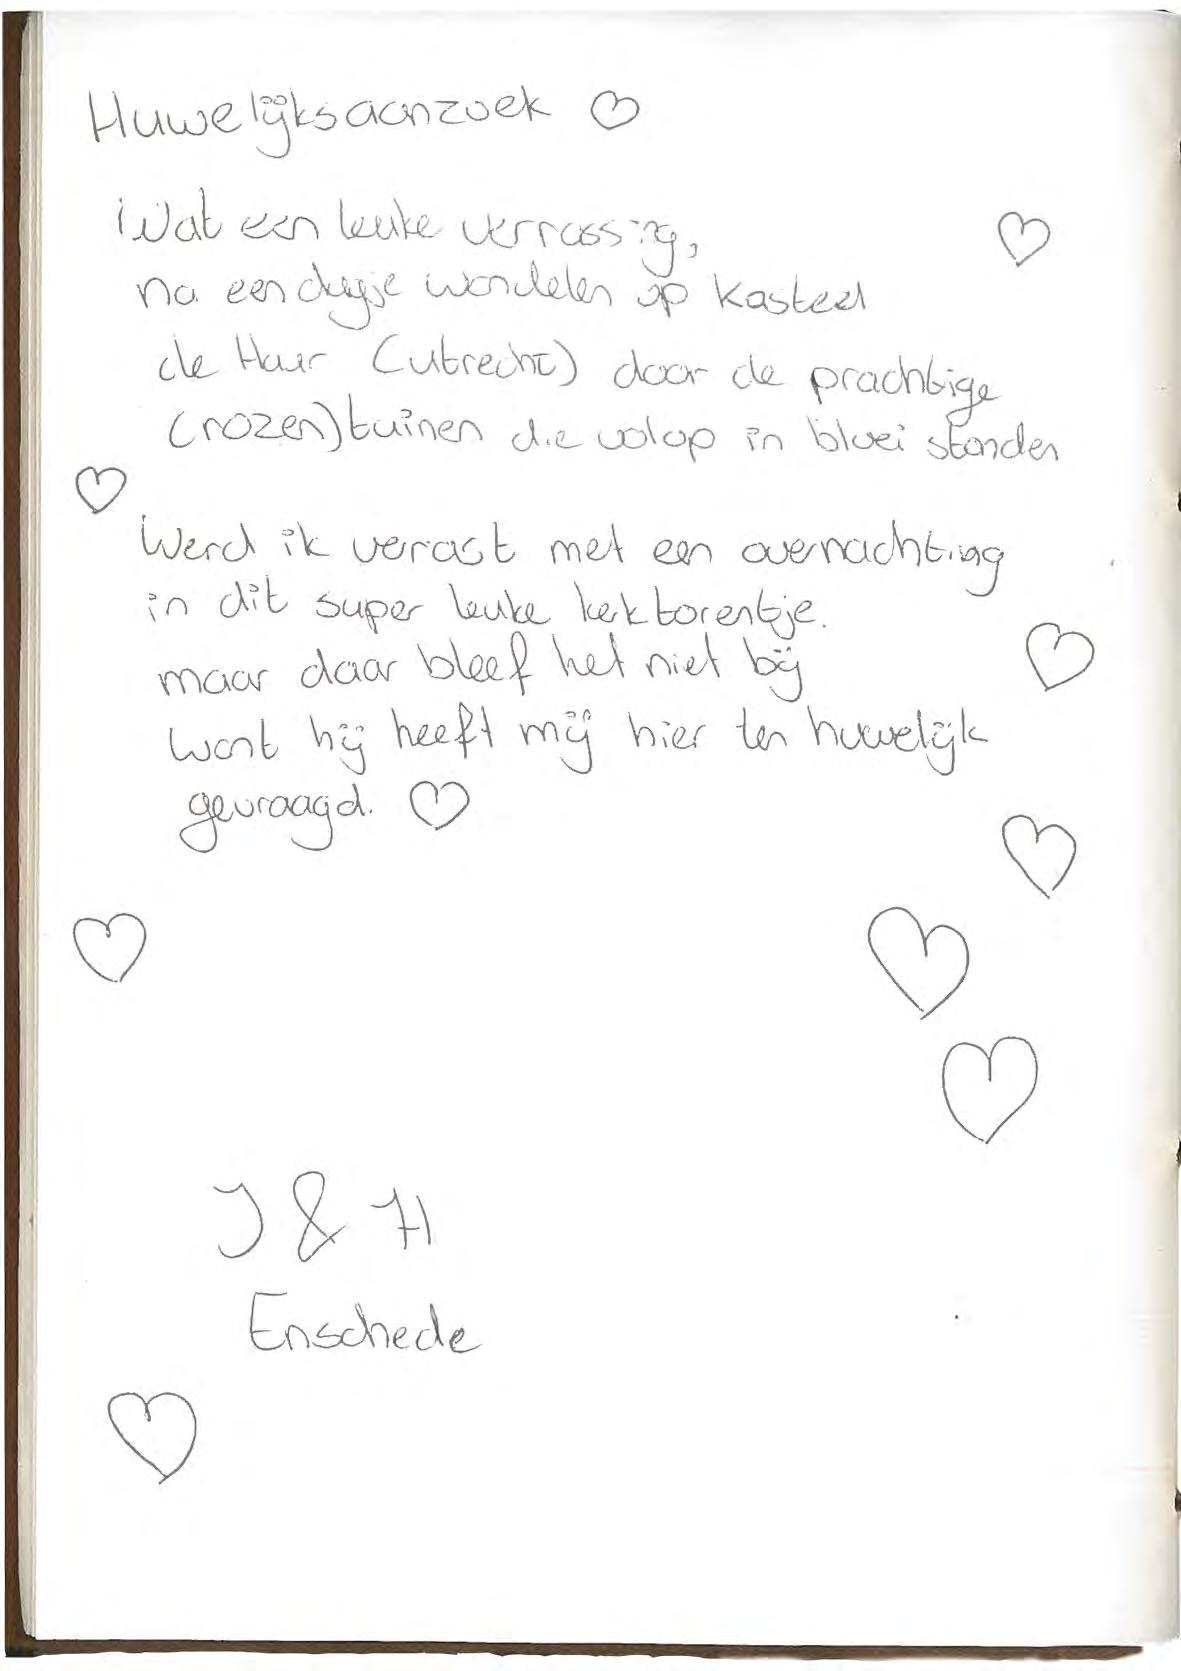 Huwelijksaanzoek ♡
Wat een leuke verrassing,
na een dagje wandelen op kasteel
de Haar (utrecht) door de prachtige
(rozen)tuinen die volop in bloei stonden
Werd ik verrast met een overnachting
in dit super leuke kerktorentje.
maar daar bleef het niet bij
want hij heeft mij hier ten huwelijk
gevraagd. ♡
J & H
Enschede